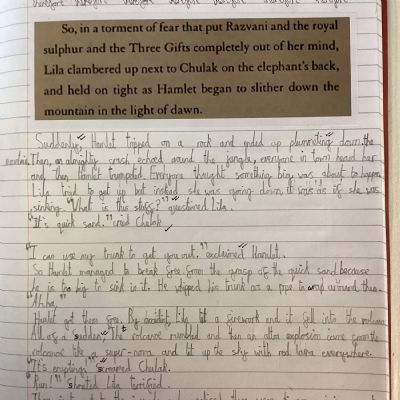 therefore therefore therefore therefore therefore therefore
So, in a torment of fear that put Razvani and the royal
sulphur and the Three Gifts completely out of her mind,
Lila clambered up next to Chulak on the elephant's back,
and held on tight as Hamlet began to slither down the
mountain in the light of dawn.
Suddenly, Hamlet tripped on a rock and ended up plummeting down the
mountain. Then, an almighty crash echoed around the jungle, everyone in town heard
and then Hamlet trumpeted. Everyone thought something big was about to happen.
Lila tried to get up but instead she was going down, it was as if she was
sinking. "What is this stuff?" questioned Lila.
"It's quick sand." cried Chulak
"I can use my trunk to get you out." exclaimed Hamlet.
So Hamlet managed to break free from the grasp of the quick sand because
he is too big to sink in it. He whipped his trunk as a rope to wrap around them.
"Ahha."
Hamlet got them free. By accident, Lila lit a firework and it fell into the volcano.
All of a sudden, The volcano rumbled and then an ultra explosion came from the
volcano like a super-nova and lit up the sky with red lava everywhere.
"It's erupting!" screamed Chulak.
"Run!" shouted Lila terrified.